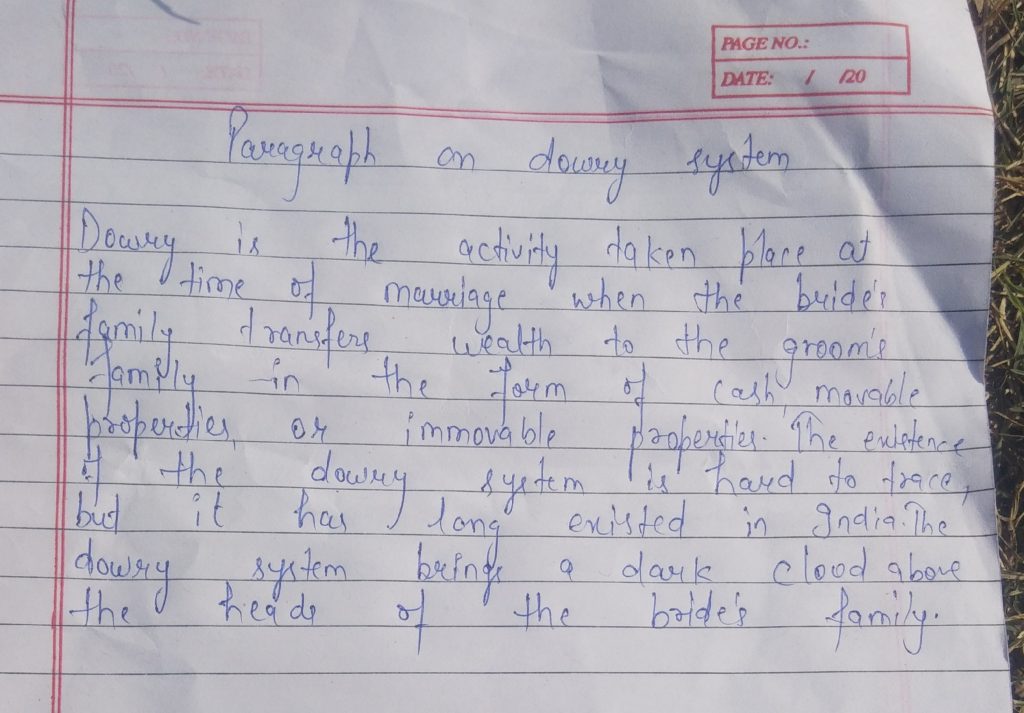 PAGE NO.:
DATE: / /20
Paragraph on dowry system
Dowry is the activity taken place at
the time of marriage when the bride's
family transfers wealth to the groom's
family in the form of cash, movable
properties, or immovable properties. The existence
of the dowry system is hard to trace,
but it has long existed in India. The
dowry system brings a dark cloud above
the heads of the bride's family.